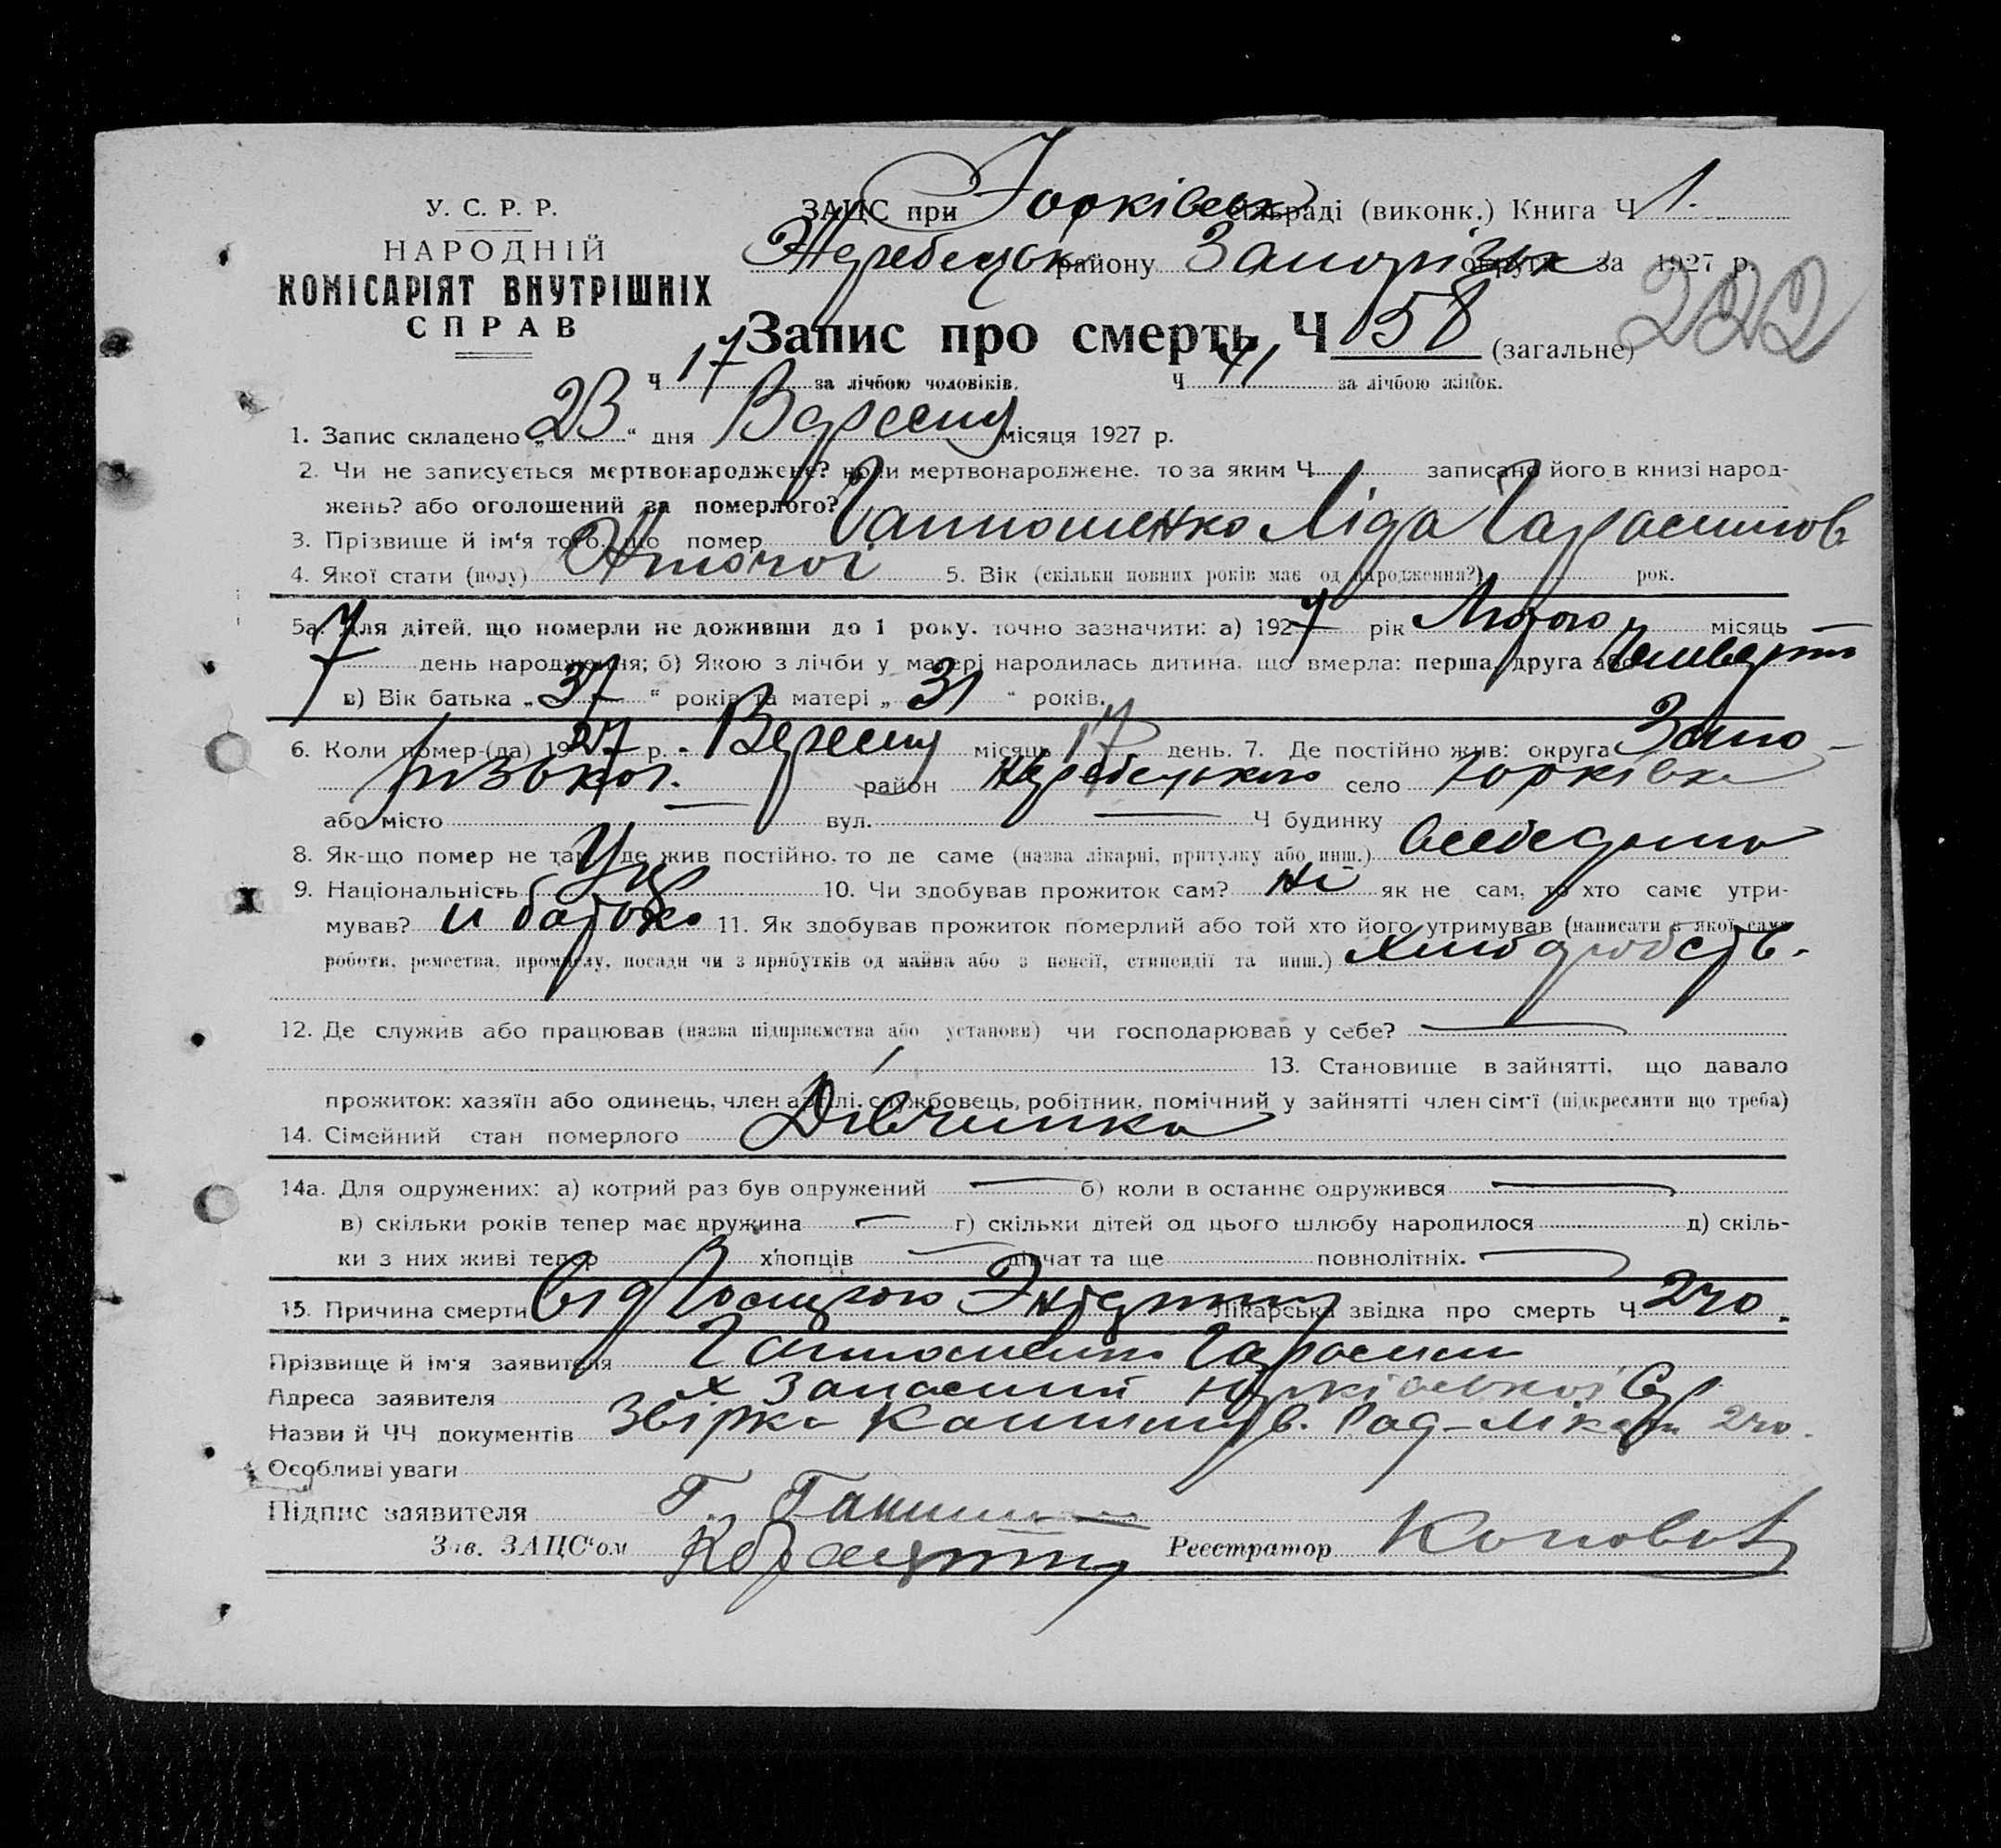 У. С. Р. Р.
НАРОДНІЙ
КОМІСАРІЯТ ВНУТРІШНІХ
СПРАВ
ЗАЦС при Юрківськ сільраді (виконк.) Книга Ч 1.
Жеребецьк району Запорізьк округи за 1927 р.
222
Запис про смерть Ч 58 (загальне)
Ч 17 за лічбою чоловіків. Ч 41 за лічбою жінок.
1. Запис складено „23“ дня Вересня місяця 1927 р.
2. Чи не записується мертвонароджене? коли мертвонароджене, то за яким Ч записано його в книзі народ-
жень? або оголошений за померлого?
3. Прізвище й ім'я того, що помер Ганношенко Ліда Гарасимов
4. Якої стати (полу) Жіночої 5. Вік (скільки повних років має од народження?) рок.
5а. Для дітей, що померли не доживши до 1 року, точно зазначити: а) 1927 рік Лютого місяць
7 день народження; б) Якою з лічби у матері народилась дитина, що вмерла: перша, друга або
в) Вік батька „37“ років та матері „31“ років.
6. Коли помер-(ла) 1927 р. Вересня місяць 17 день. 7. Де постійно жив: округа Запо-
різької район Жеребецького село Юрківка
або місто вул. Ч будинку
8. Як-що помер не там, де жив постійно, то де саме (назва лікарні, притулку або инш.)
9. Національність Укр 10. Чи здобував прожиток сам? Ні як не сам, то хто саме утри-
мував? батько 11. Як здобував прожиток померлий або той хто його утримував (написати з якої саме
роботи, ремества, промислу, посади чи з прибутків од майна або з пенсії, стипендії та инш.)
12. Де служив або працював (назва підприємства або установи) чи господарював у себе?
13. Становище в зайнятті, що давало
прожиток: хазяїн або одинець, член артілі, службовець, робітник, помічний у зайнятті член сім'ї (підкреслити що треба)
14. Сімейний стан померлого Дівчинка
14а. Для одружених: а) котрий раз був одружений б) коли в останнє одружився
в) скільки років тепер має дружина г) скільки дітей од цього шлюбу народилося д) скіль-
ки з них живі тепер хлопців дівчат та ще повнолітніх.
15. Причина смерти від Лікарська звідка про смерть Ч 240.
Прізвище й ім'я заявителя Ганношенко Гарасим
Адреса заявителя х Запасний Юрківської С/р
Назви й ЧЧ документів 240.
Особливі уваги
Підпис заявителя Г.
Зав. ЗАЦС'ом Реєстратор